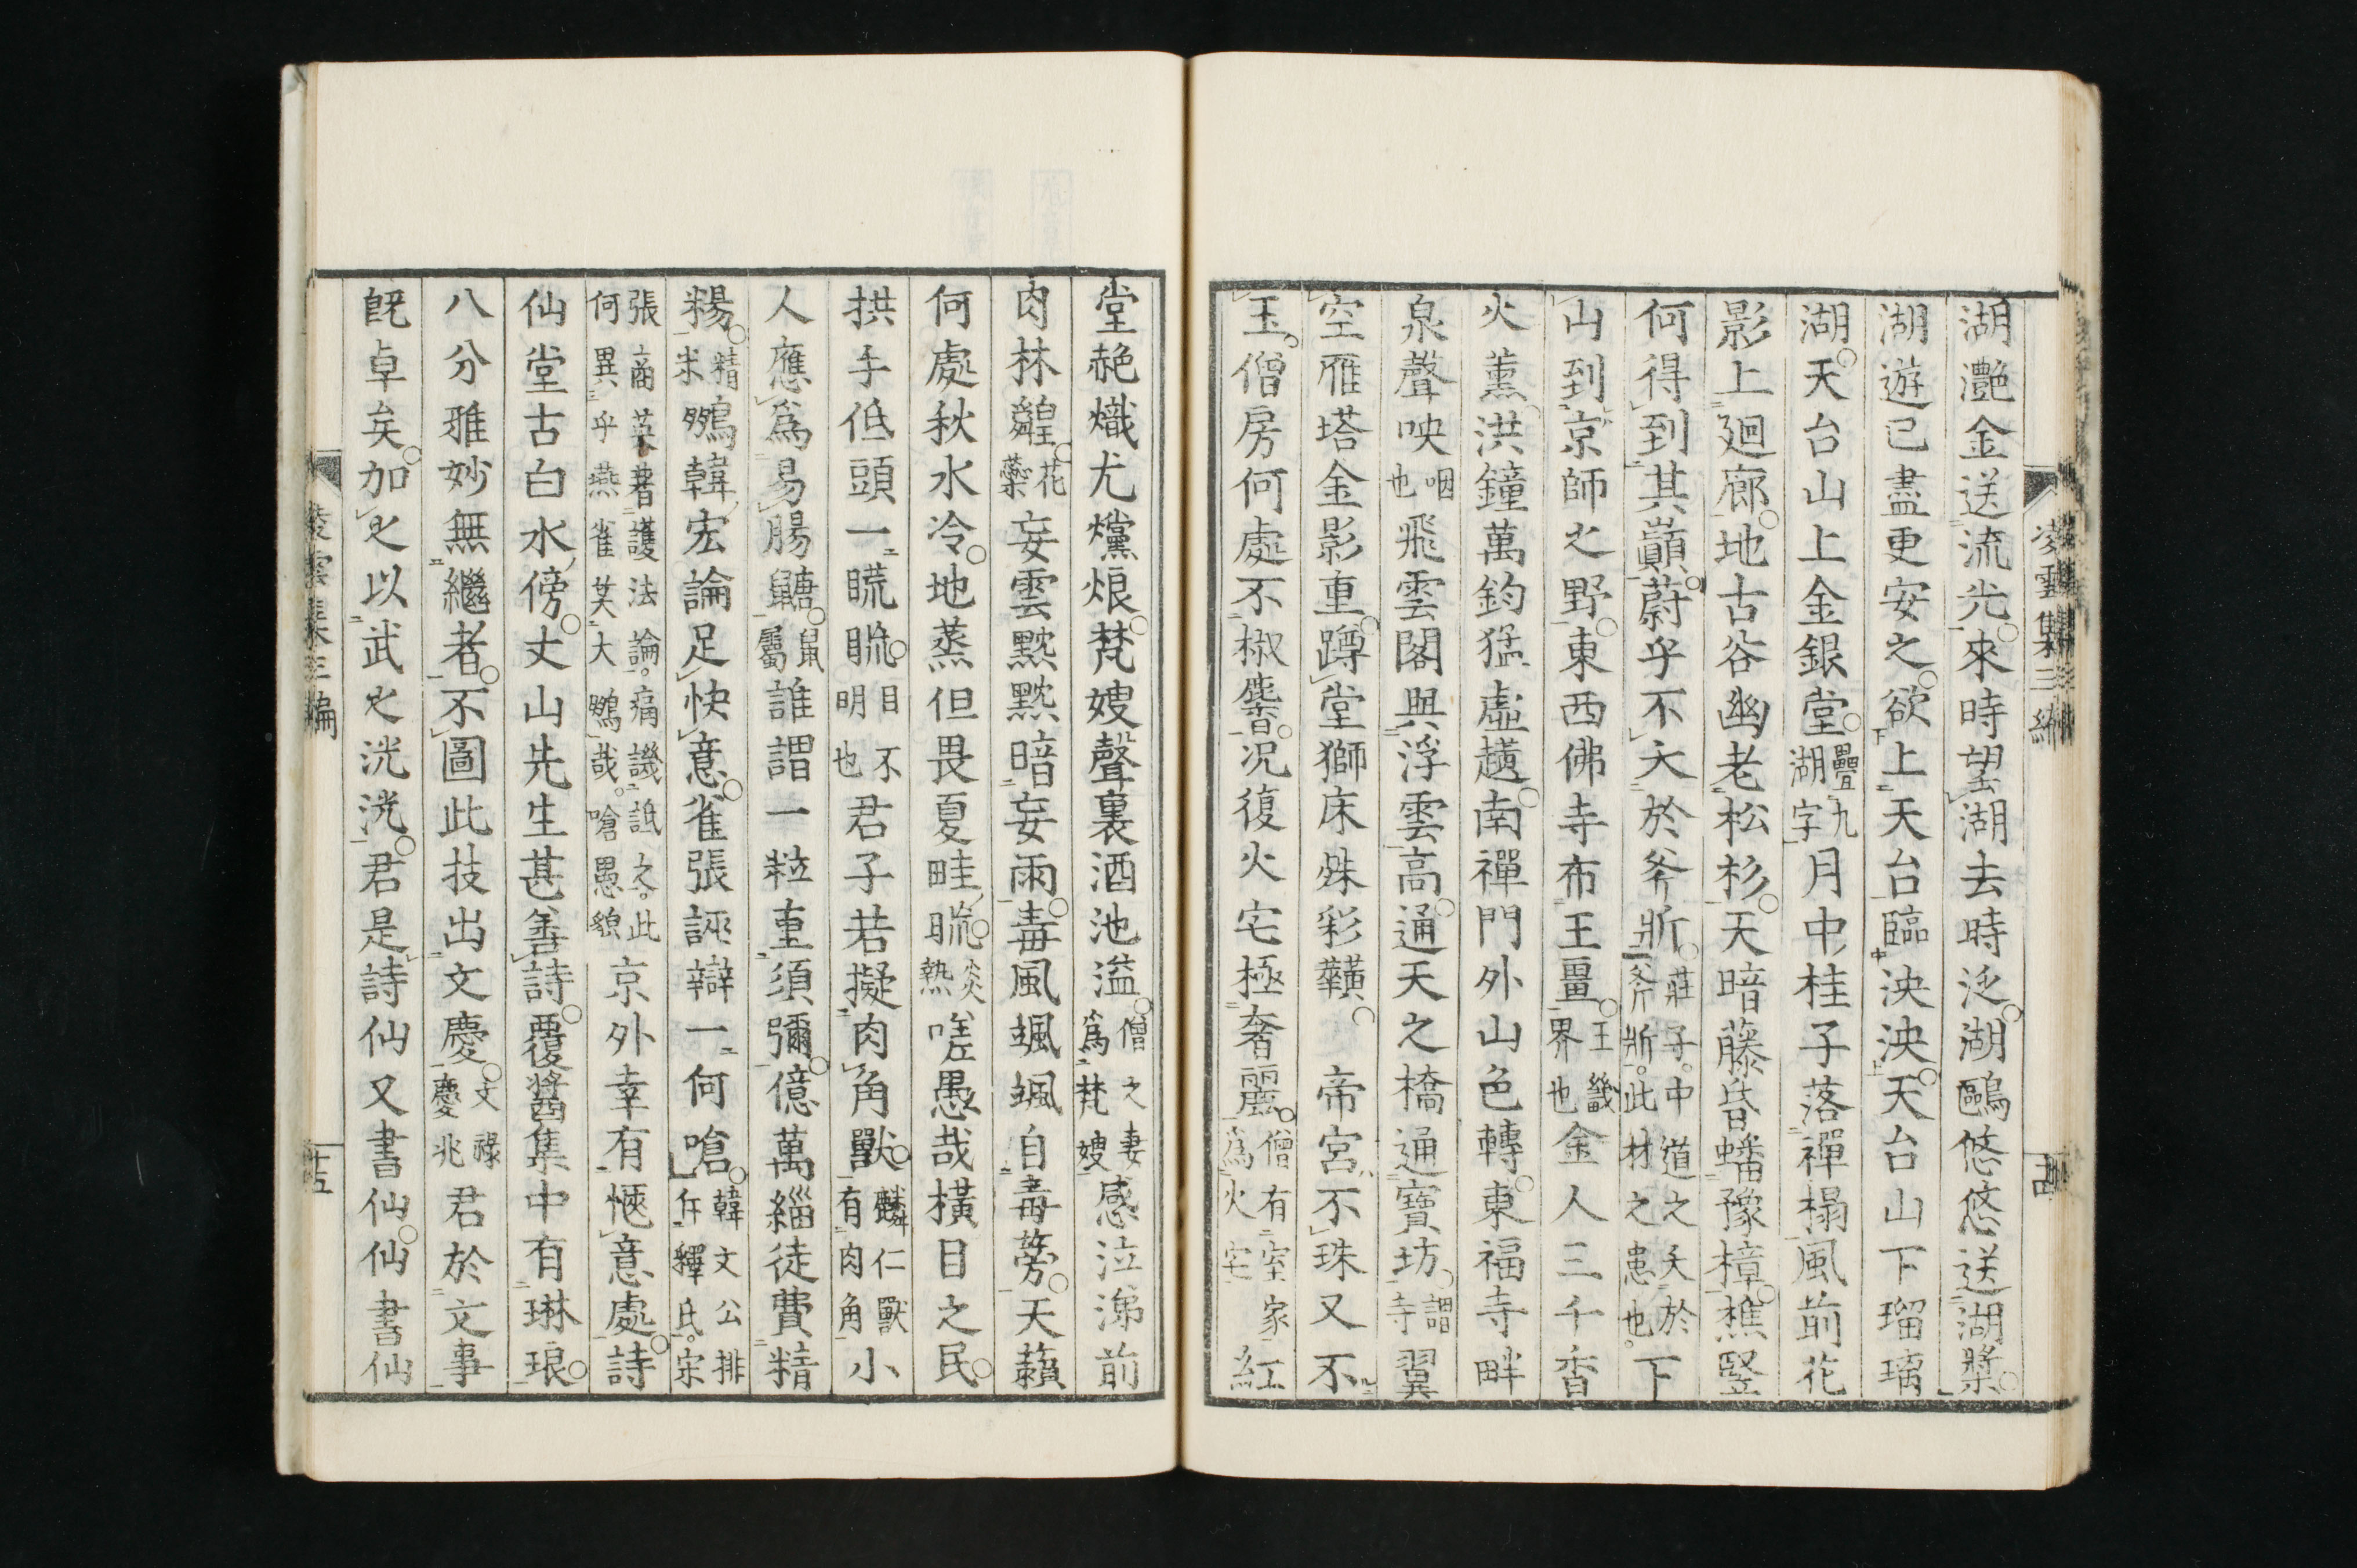 凌雲集三編
湖灔金送流光來時望湖去時泛湖鷗悠悠送湖槳
湖遊已盡更安之欲上天台臨泱泱天台山下瑠璃
湖天台山上金銀堂疊九湖字月中桂子落禪榻風前花
影上廻廊地古谷幽老松杉天暗藤昏蟠豫樟樵豎
何得到其巔蔚乎不夭於斧斨莊子中道之夭於斧斨此材之患也下
山到京師之野東西佛寺布王畺王畿界也金人三千香
火薰洪鐘萬鈞猛虡趪南禪門外山色轉東福寺畔
泉聲咉咽也飛雲閣與浮雲高通天之橋通寶坊謂寺翼
空雁塔金影重蹲堂獅床殊彩䵃帝宮不珠又不
玉僧房何處不椒馨况復火宅極奢麗僧有室家為火宅紅
堂赩熾尤爣烺梵嫂聲裏酒池溢僧之妻為梵嫂感泣涕前
肉林花藥妄雲黕黕暗妄雨毒風颯颯自毒蒡天籟
何處秋水冷地蒸但畏夏畦炎熱嗟愚哉橫目之民
拱手低頭一目不明也君子若擬肉角獸麟仁獸有肉角小
人應為易腸鼠屬誰謂一粒重須彌億萬緇徒費精
粻精米鸚韓宏論足快意雀張誣辯一何嗆韓文公排斥釋氏宋
張商英著護法論痛譏詆之此何異乎燕雀笑大鸚哉嗆愚貌京外幸有愜意處詩
仙堂古白水傍丈山先生甚善詩覆醬集中有琳琅
八分雅妙無繼者不圖此技出文慶文祿慶兆君於文事
既卓矣加之以武之洸洸君是詩仙又書仙仙書仙
凌雲集三編
十五